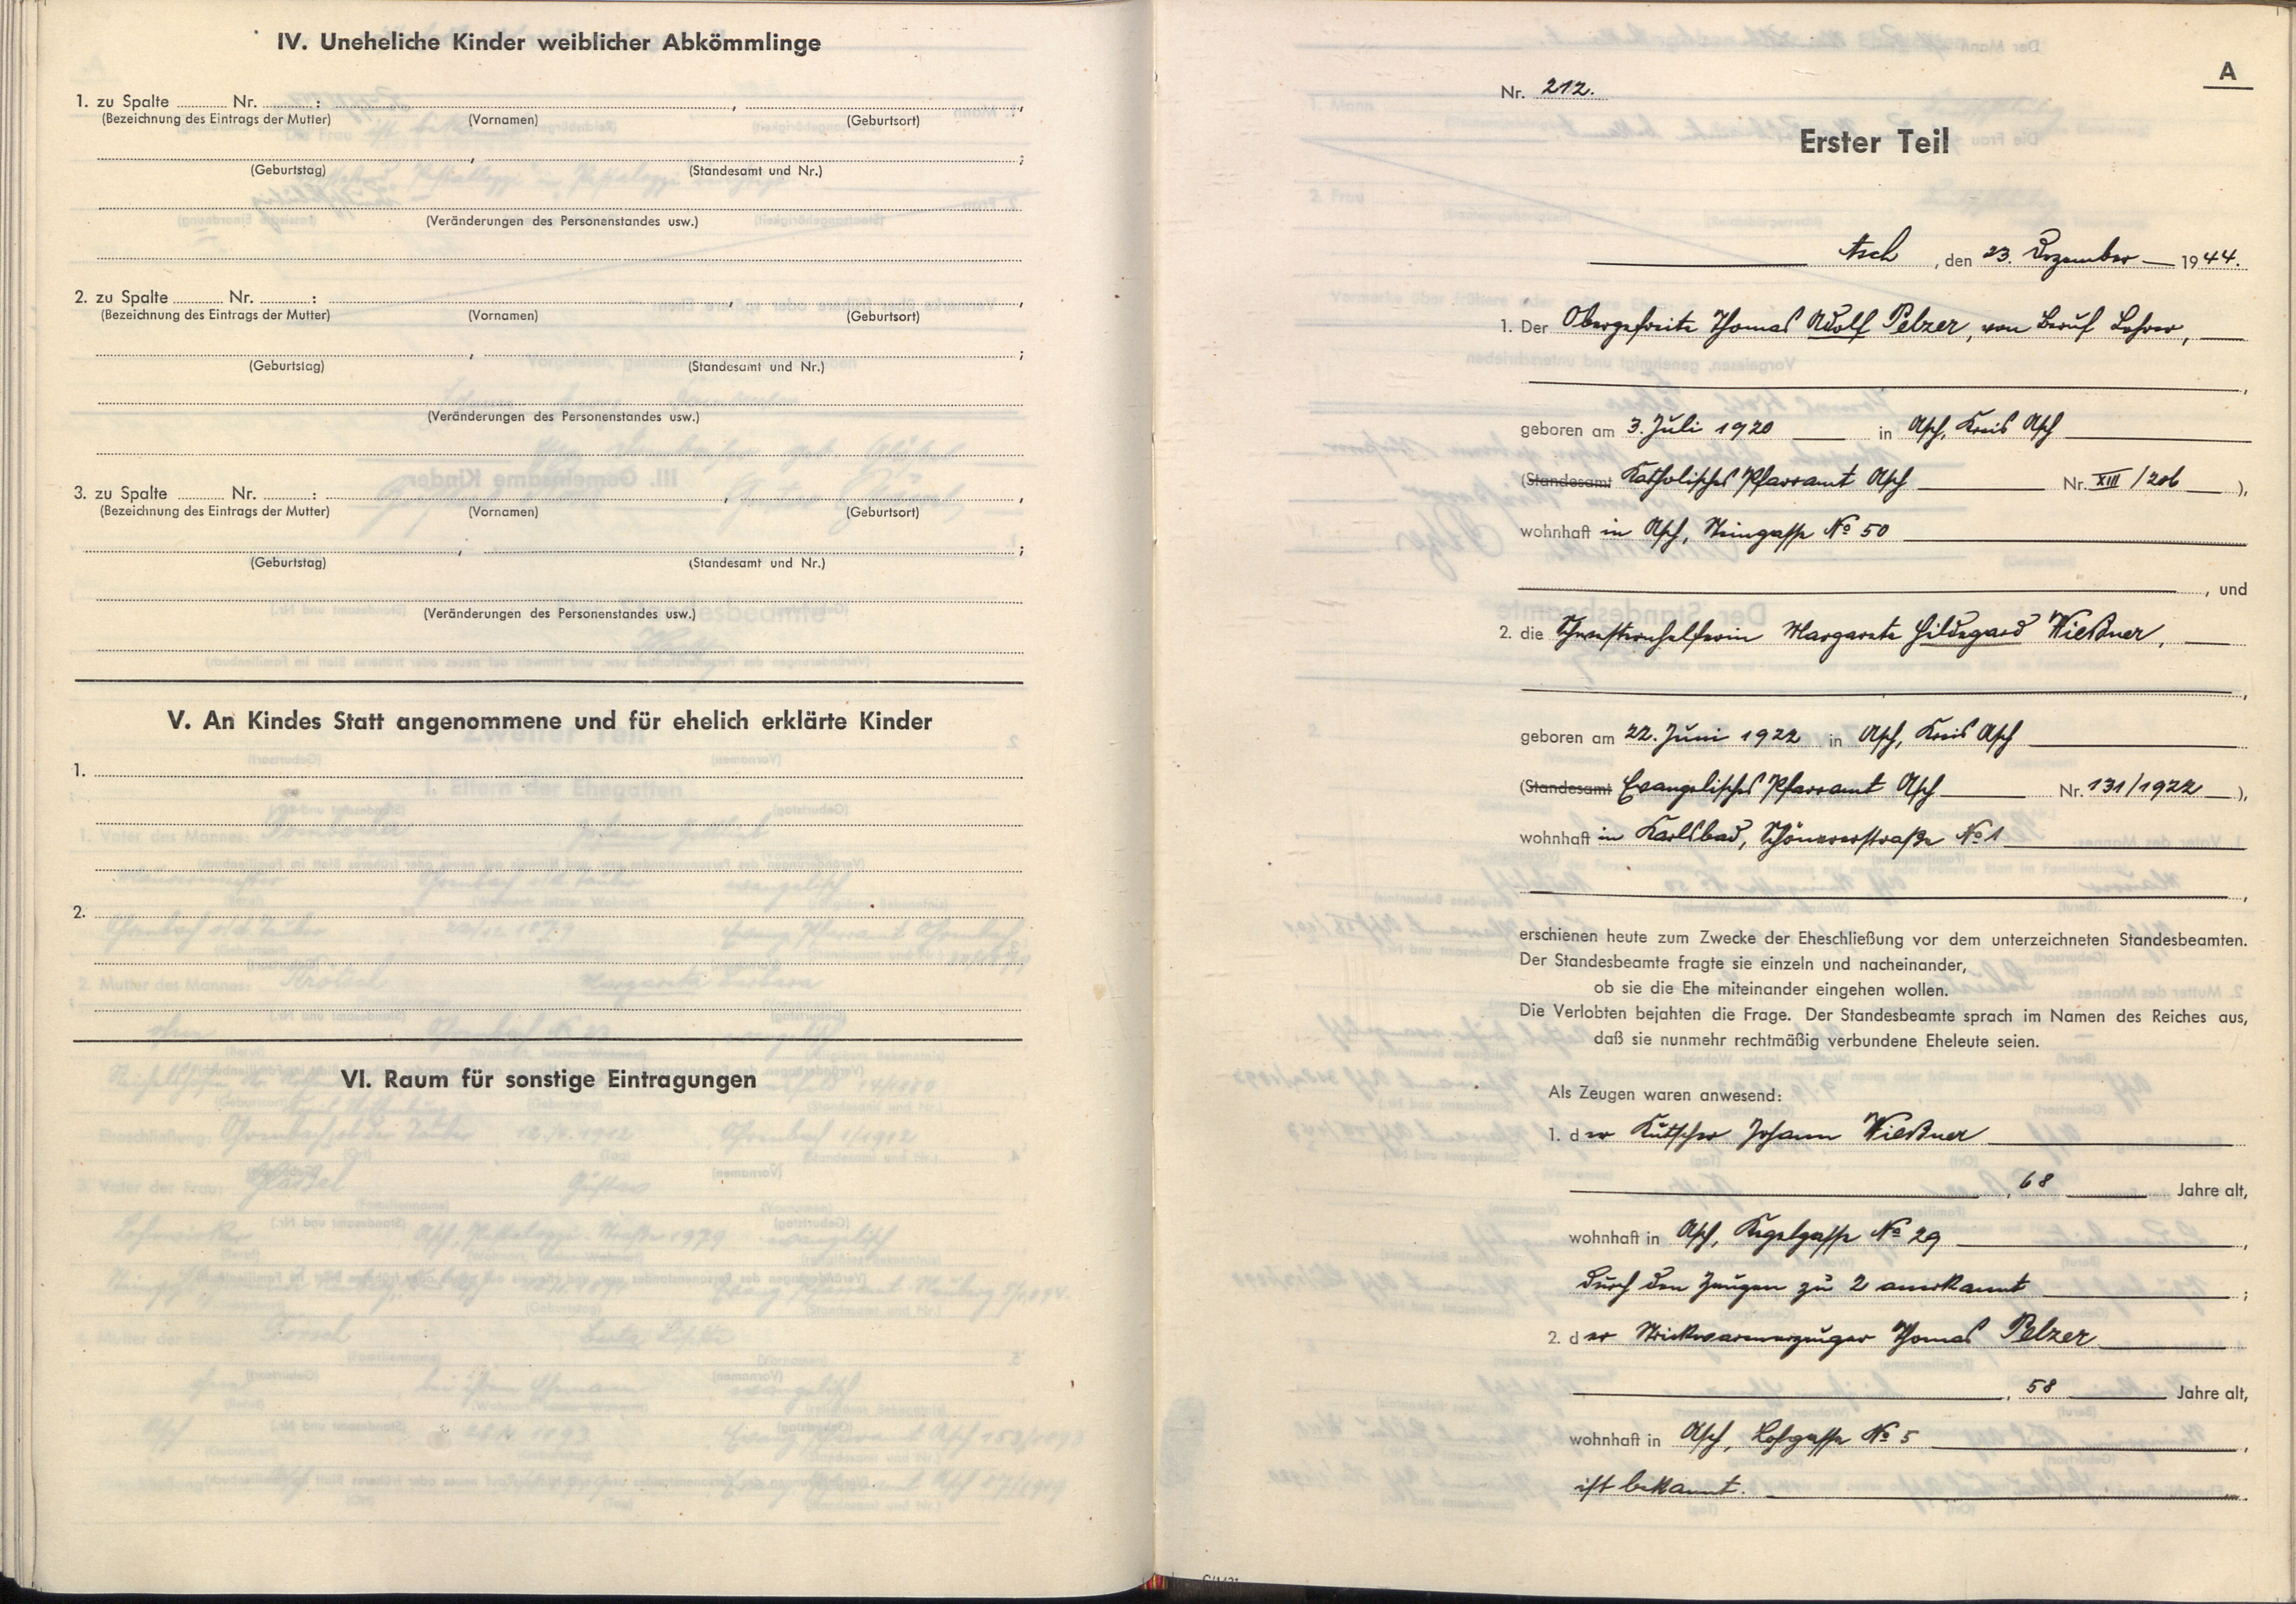 IV. Uneheliche Kinder weiblicher Abkömmlinge
1. zu Spalte ........ Nr. ........ : , ,
(Bezeichnung des Eintrags der Mutter) (Vornamen) (Geburtsort)
, ;
(Geburtstag) (Standesamt und Nr.)
(Veränderungen des Personenstandes usw.)
2. zu Spalte ........ Nr. ........ : , ,
(Bezeichnung des Eintrags der Mutter) (Vornamen) (Geburtsort)
, ;
(Geburtstag) (Standesamt und Nr.)
(Veränderungen des Personenstandes usw.)
3. zu Spalte ........ Nr. ........ : , ,
(Bezeichnung des Eintrags der Mutter) (Vornamen) (Geburtsort)
, ;
(Geburtstag) (Standesamt und Nr.)
(Veränderungen des Personenstandes usw.)
V. An Kindes Statt angenommene und für ehelich erklärte Kinder
1.
2.
VI. Raum für sonstige Eintragungen
A
Nr. 212.
Erster Teil
Asch, den 23. Dezember 1944.
1. Der Obergefreite Thomas Adolf Pelzer, von Beruf Lehrer,
geboren am 3. Juli 1920 in Asch, Kreis Asch
(Standesamt Katholisches Pfarramt Asch Nr. XIII/206),
wohnhaft in Asch, Steingasse No 50
, und
2. die Schwesternhelferin Margarete Hildegard Wießner,
geboren am 22. Juni 1922 in Asch, Kreis Asch
(Standesamt Evangelisches Pfarramt Asch Nr. 131/1922),
wohnhaft in Karlsbad, Schönererstraße No 1
erschienen heute zum Zwecke der Eheschließung vor dem unterzeichneten Standesbeamten.
Der Standesbeamte fragte sie einzeln und nacheinander,
ob sie die Ehe miteinander eingehen wollen.
Die Verlobten bejahten die Frage. Der Standesbeamte sprach im Namen des Reiches aus,
daß sie nunmehr rechtmäßig verbundene Eheleute seien.
Als Zeugen waren anwesend:
1. der Kutscher Johann Wießner
, 68 Jahre alt,
wohnhaft in Asch, Kegelgasse No 29,
durch den Zeugen zu 2 anerkannt;
2. der Strickwarenerzeuger Thomas Pelzer
, 58 Jahre alt,
wohnhaft in Asch, Lohgasse No 5,
ist bekannt.